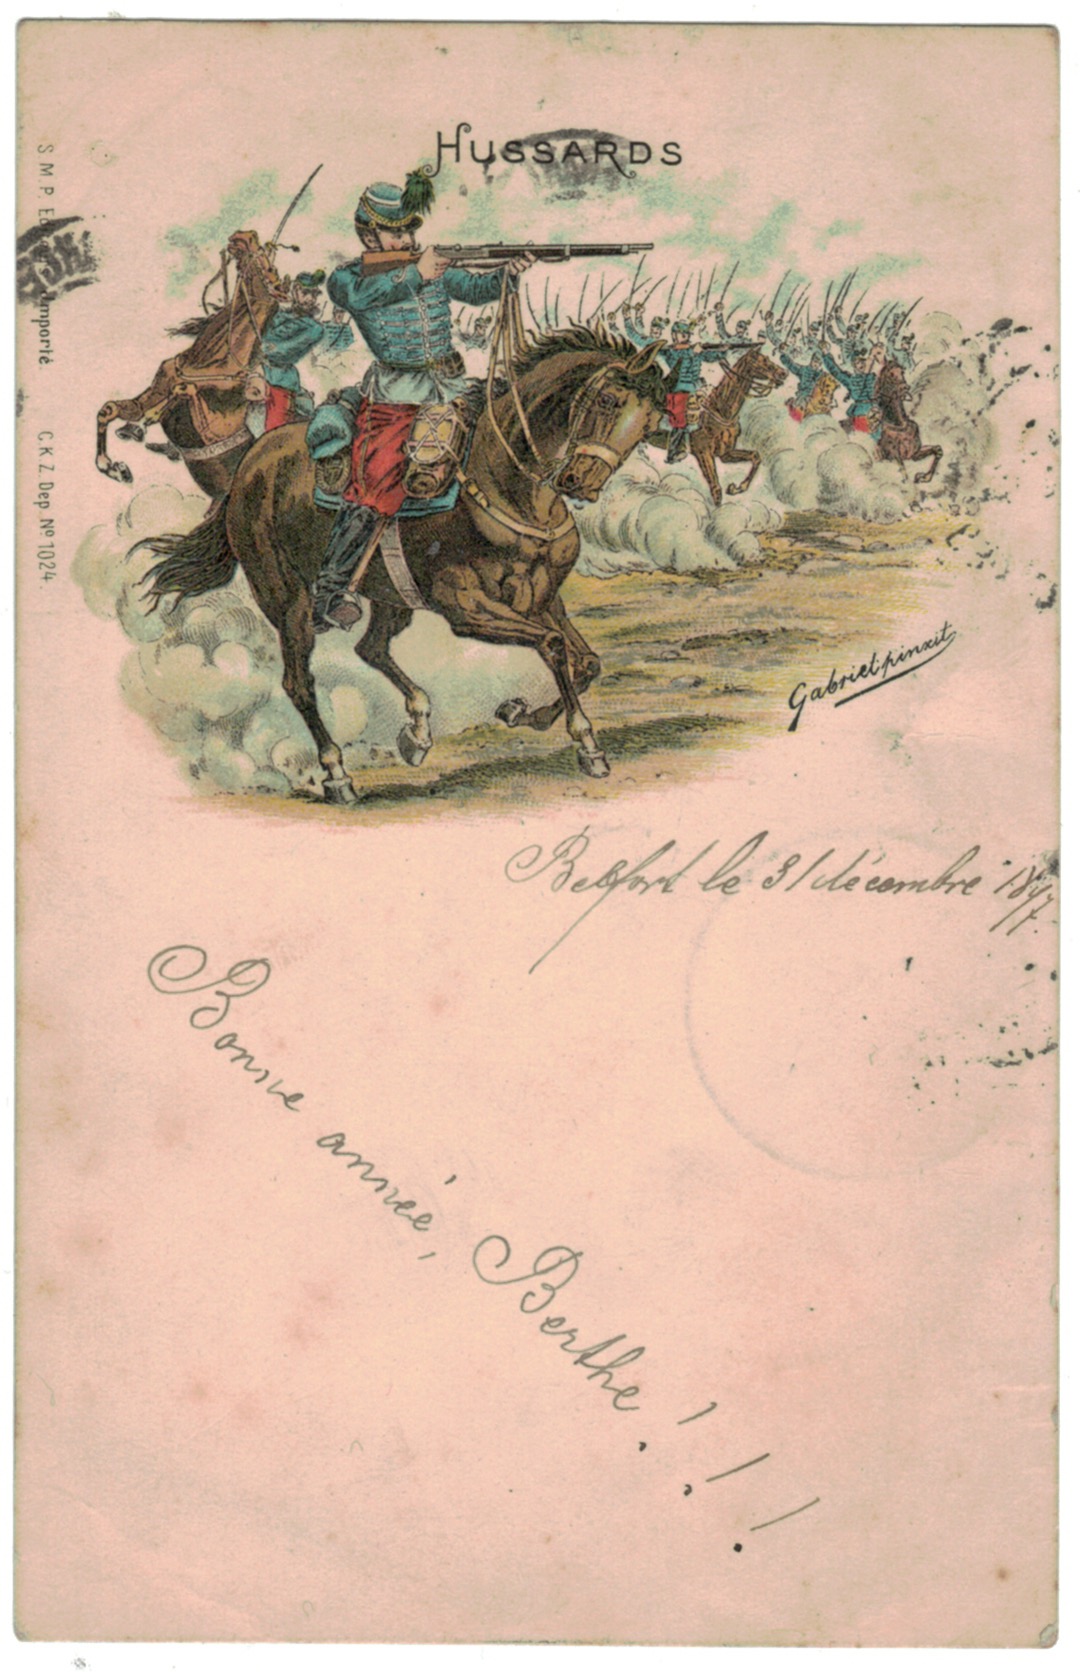 HUSSARDS
S. M. P. Importé C. K. Z. Dep Nº 1024.
Gabriel pinxit
Belfort le 31 décembre 1897
Bonne année, Berthe!!!